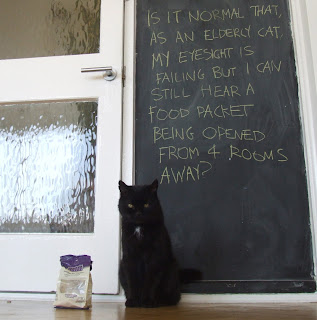 IS IT NORMAL THAT,
AS AN ELDERLY CAT,
MY EYESIGHT IS
FAILING BUT I CAN
STILL HEAR A
FOOD PACKET
BEING OPENED
FROM 4 ROOMS
AWAY?